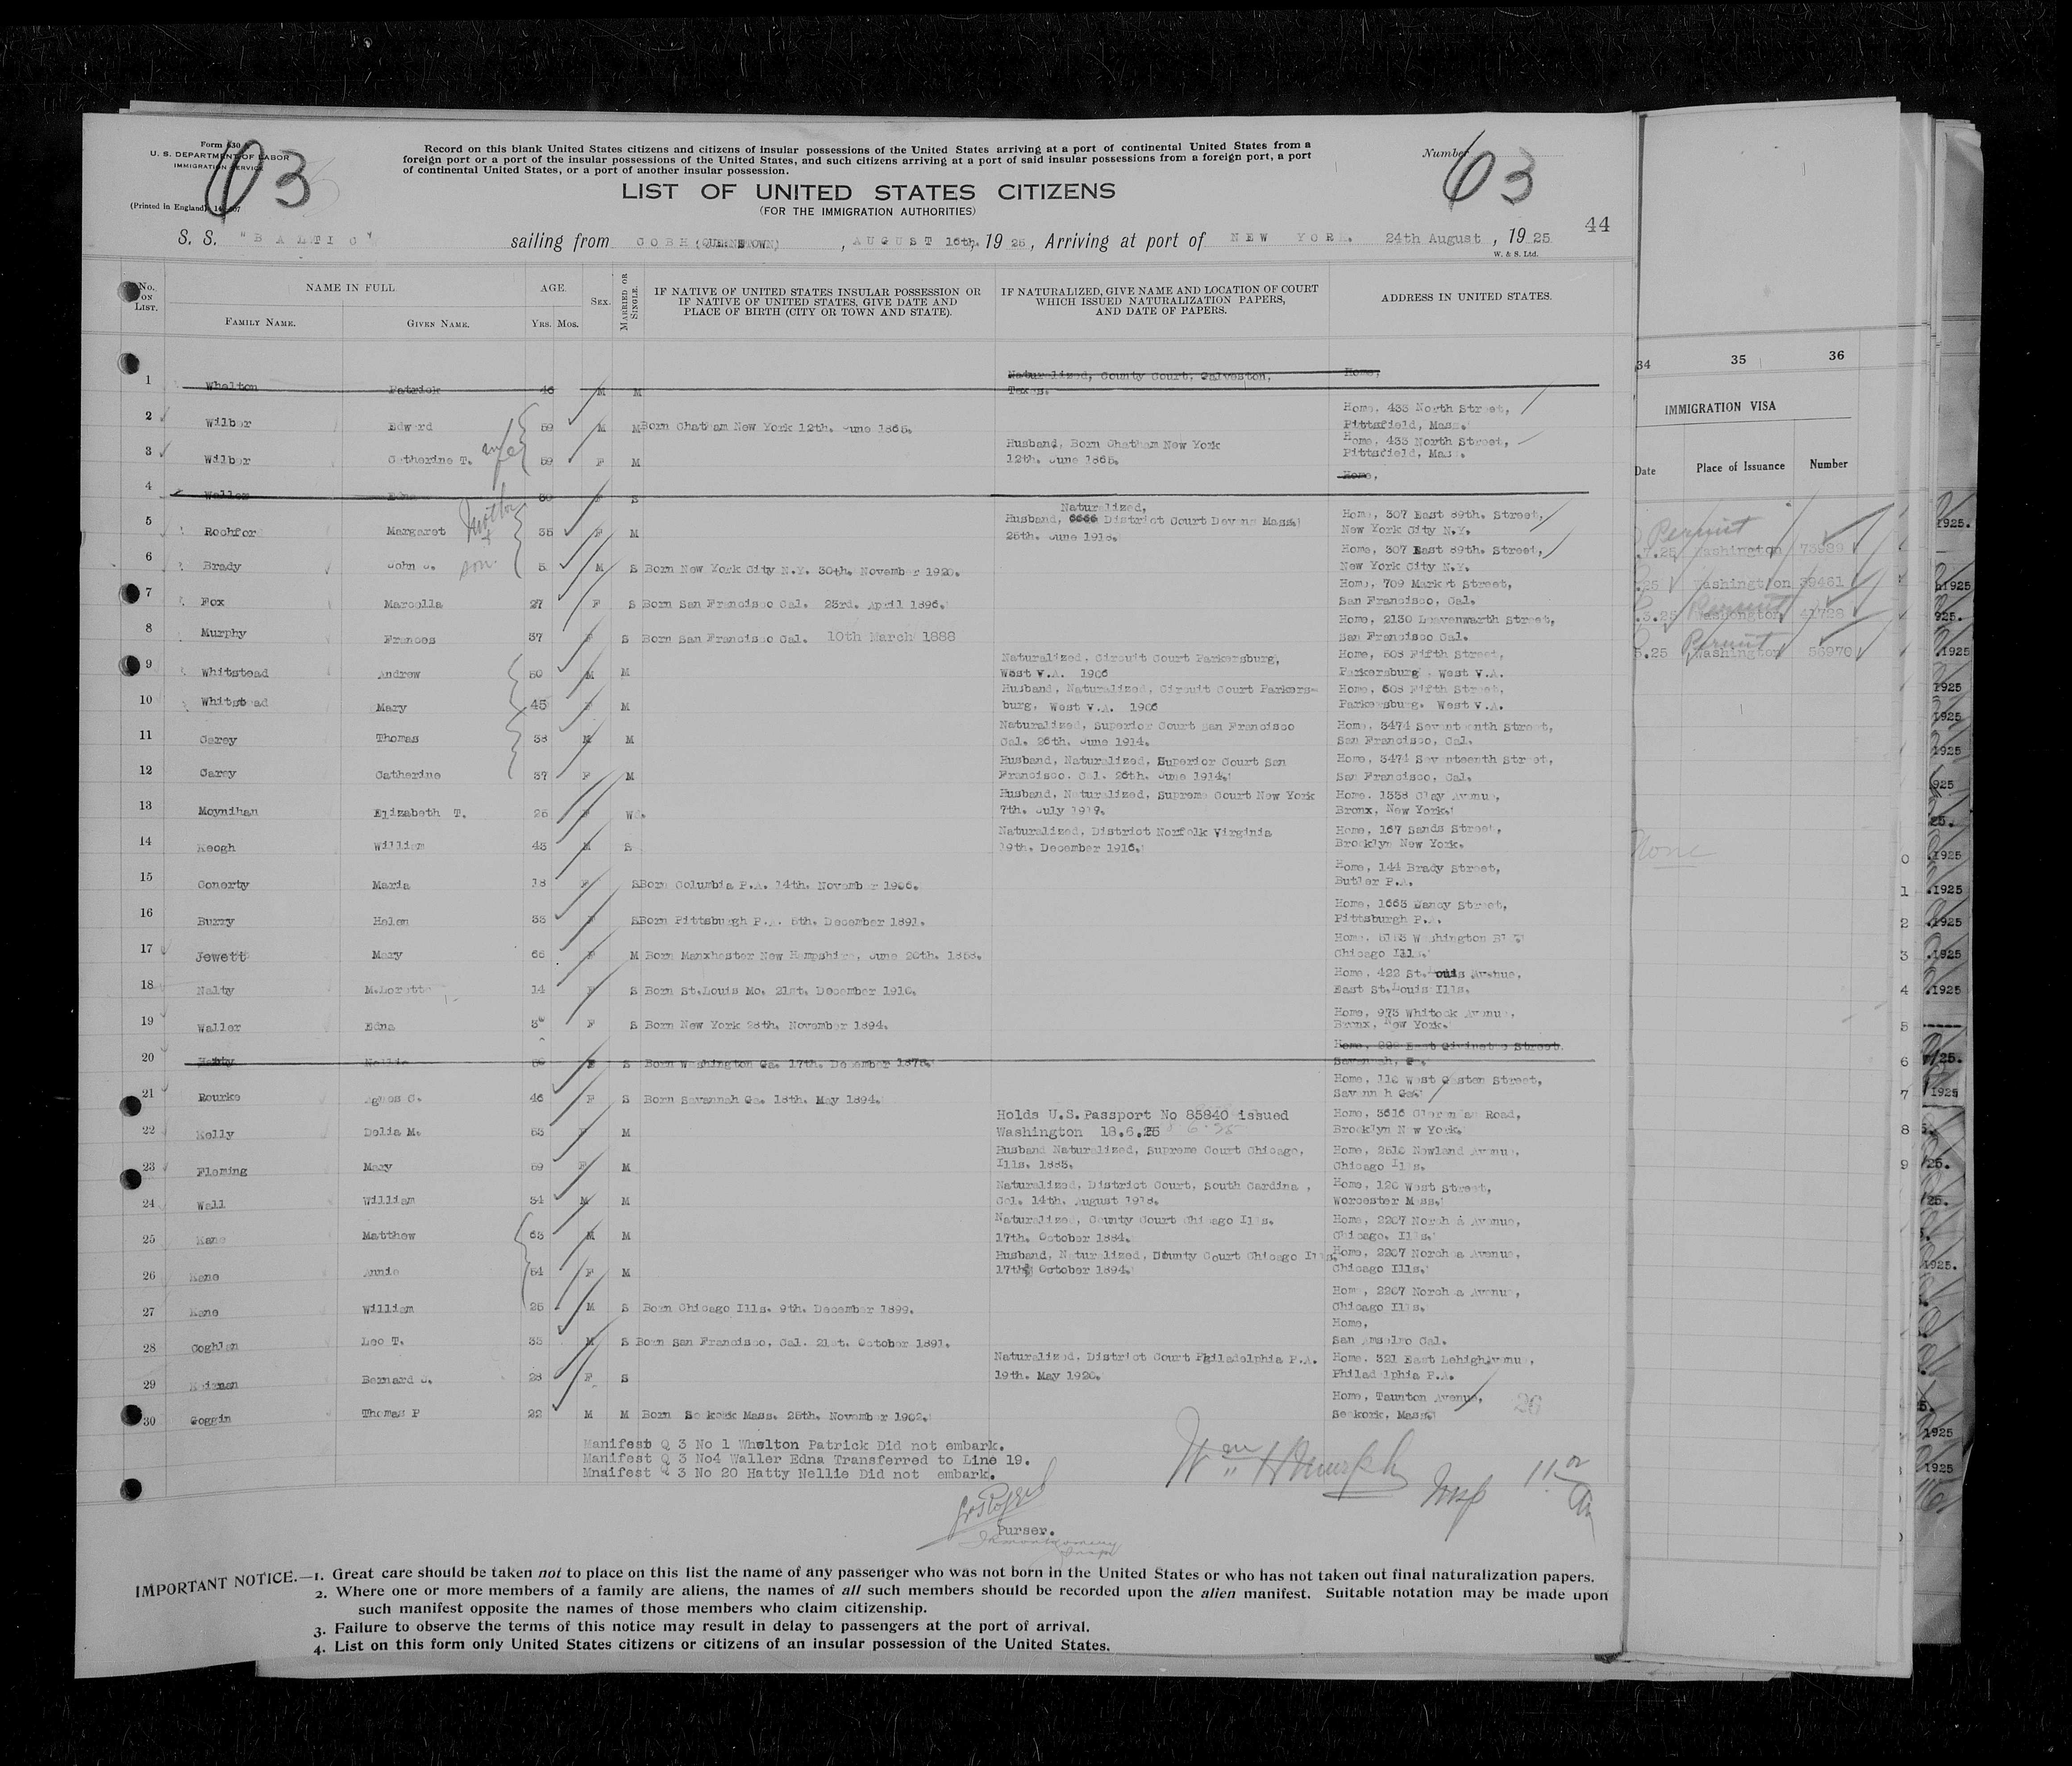 Form 630
U. S. DEPARTMENT OF LABOR
IMMIGRATION SERVICE
(Printed in England)
63
Record on this blank United States citizens and citizens of insular possessions of the United States arriving at a port of continental United States from a
foreign port or a port of the insular possessions of the United States, and such citizens arriving at a port of said insular possessions from a foreign port, a port
of continental United States, or a port of another insular possession.
Number
63
LIST OF UNITED STATES CITIZENS
(FOR THE IMMIGRATION AUTHORITIES)
44
S. S. "BALTIC" sailing from COBH (QUEENSTOWN), AUGUST 16th, 1925, Arriving at port of NEW YORK. 24th August, 1925
W. & S. Ltd.
No. ON LIST. NAME IN FULL AGE. SEX. MARRIED OR SINGLE. IF NATIVE OF UNITED STATES INSULAR POSSESSION OR IF NATIVE OF UNITED STATES, GIVE DATE AND PLACE OF BIRTH (CITY OR TOWN AND STATE). IF NATURALIZED, GIVE NAME AND LOCATION OF COURT WHICH ISSUED NATURALIZATION PAPERS, AND DATE OF PAPERS. ADDRESS IN UNITED STATES.
FAMILY NAME. GIVEN NAME. YRS. MOS.
1 Whelton Patrick 46 M M Naturalized, County Court, Galveston, Texas. Home,
2 Wilbor Edward 59 M M Born Chatham New York 12th. June 1865. Home, 433 North Street, Pittsfield, Mass.
3 Wilbor Catherine T. wife 59 F M Husband, Born Chatham New York 12th. June 1865. Home, 433 North Street, Pittsfield, Mass.
4 Waller Edna 30 F S Home,
5 Rochfor Margaret Mother 35 F M Naturalized, Husband, District Court Devens Mass. 25th. June 1918. Home, 307 East 89th. Street, New York City N.Y.
6 Brady John J. son. 5 M S Born New York City N.Y. 30th. November 1920. Home, 307 East 89th. Street, New York City N.Y.
7 Fox Marcella 27 F S Born San Francisco Cal. 23rd. April 1896. Home, 709 Market Street, San Francisco, Cal.
8 Murphy Frances 37 F S Born San Francisco Cal. 10th March 1888 Home, 2130 Leavenwarth Street, San Francisco Cal.
9 Whitstead Andrew 50 M M Naturalized, Circuit Court Parkersburg, West V.A. 1906 Home, 508 Fifth Street, Parkersburg, West V.A.
10 Whitstead Mary 45 F M Husband, Naturalized, Circuit Court Parkersburg, West V.A. 1906 Home, 508 Fifth Street, Parkersburg, West V.A.
11 Carey Thomas 38 M M Naturalized, Superior Court San Francisco Cal. 26th. June 1914. Home, 3474 Seventeenth Street, San Francisco, Cal.
12 Carey Catherine 37 F M Husband, Naturalized, Superior Court San Francisco. Cal. 26th. June 1914. Home, 3474 Seventeenth Street, San Francisco, Cal.
13 Moynihan Elizabeth T. 26 F Wd. Husband, Naturalized, Supreme Court New York 7th. July 1919. Home, 1338 Clay Avenue, Bronx, New York.
14 Keogh William 43 M S Naturalized, District Norfolk Virginia 19th. December 1916. Home, 167 Sands Street, Brooklyn New York.
15 Conerty Maria 18 F S Born Columbia P.A. 14th. November 1906. Home, 144 Brady Street, Butler P.A.
16 Burry Helen 33 F S Born Pittsburgh P.A. 5th. December 1891. Home, 1663 Street, Pittsburgh P.A.
17 Jewett Mary 66 F M Born Manxhester New Hampshire, June 20th. 1858. Home, Washington Chicago Ills.
18 Nalty M.Lorette 14 F S Born St.Louis Mo. 21st. December 1910. Home, 422 St.Louis Avenue, East St.Louis Ills.
19 Waller Edna F S Born New York 28th. November 1894. Home, 973 Whitock Avenue, Bronx, New York.
20 Hatty Nellie 50 F S Born Washington Ga. 17th. December 1875. Home, 222 East Street. Savannah, Ga.
21 Rourke Agnes C. 46 F S Born Savannah Ga. 18th. May 1894. Home, 110 West Gaston Street, Savannah Ga.
22 Kelly Delia M. 53 F M Holds U.S.Passport No 85840 issued Washington 18.6.25 Home, 3616 Road, Brooklyn New York.
23 Fleming Mary 59 F M Husband Naturalized, Supreme Court Chicago, Ills. 1885. Home, 2510 Newland Avenue, Chicago Ills.
24 Wall William 34 M M Naturalized, District Court, South Cardina, Col. 14th. August 1918. Home, 120 West Street, Worcester Mass.
25 Kane Matthew 63 M M Naturalized, County Court Chicago Ills. 17th. October 1884. Home, 2207 Avenue, Chicago, Ills.
26 Kane Annie 54 F M Husband, Naturalized, County Court Chicago Ills. 17th October 1894. Home, 2207 Avenue, Chicago Ills.
27 Kane William 25 M S Born Chicago Ills. 9th. December 1899. Home, 2207 Avenue, Chicago Ills.
28 Coghlan Leo T. 33 M S Born San Francisco, Cal. 21st. October 1891. Home, San Anselmo Cal.
29 Bernard J. 28 F S Naturalized, District Court Philadelphia P.A. 19th. May 1920. Home, 321 East Lehigh Avenue, Philadelphia P.A.
30 Goggin Thomas P 22 M M Born Seekonk Mass. 25th. November 1902. Home, Taunton Avenue, Seekonk, Mass.
26
Manifest Q 3 No 1 Whelton Patrick Did not embark.
Manifest Q 3 No4 Waller Edna Transferred to Line 19.
Mnaifest Q 3 No 20 Hatty Nellie Did not embark.
Purser.
IMPORTANT NOTICE.—1. Great care should be taken not to place on this list the name of any passenger who was not born in the United States or who has not taken out final naturalization papers.
2. Where one or more members of a family are aliens, the names of all such members should be recorded upon the alien manifest. Suitable notation may be made upon
such manifest opposite the names of those members who claim citizenship.
3. Failure to observe the terms of this notice may result in delay to passengers at the port of arrival.
4. List on this form only United States citizens or citizens of an insular possession of the United States.
34 35 36
IMMIGRATION VISA
Date Place of Issuance Number
Permit
.7.25 Washington 73989
.25 Washington 39461
Permit
.3.25 Washington 41728
Permit
5.25 Washington 56970
None